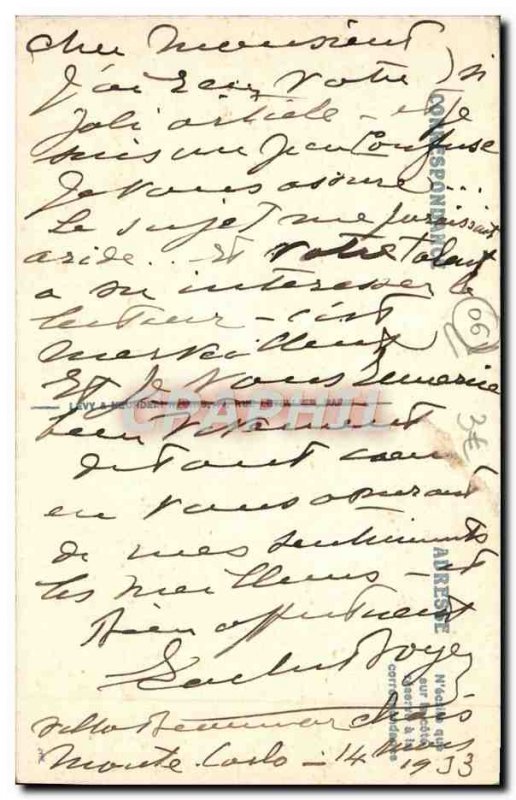 Cher Monsieur
J'ai reçu votre si
joli article - et je
suis un peu confuse
je vous assure...
Le sujet me paraissait
aride.. Et votre talent
a su intéresser le
lecteur - c'est
merveilleux
Et je vous remercie
bien vivement
de tout coeur
en vous assurant
de mes sentiments
les meilleurs - et
bien affectueux
Villa Beaumar
Monte Carlo - 14 Mars 1933
CORRESPONDANCE
ADRESSE
N'écrire que
sur le côté
réservé à la
correspondance
LEVY & NEURDEIN
CPAPHIL
06
3€